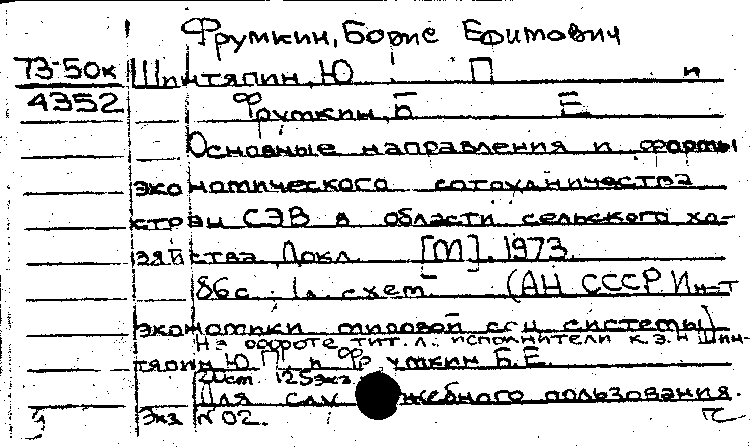 Фрумкин, Борис Ефимович
73-50к Шинтяпин, Ю П и
4352 Фрумкин, Б Е
Основные направления и формы
экономического сотрудничества
стран СЭВ в области сельского хо-
зяйства Докл. [М]. 1973
86с. 1л. схем (АН СССР Ин-т
экономики мировой соц системы)
На обороте тит. л.: исполнители к.э.н Шин-
тяпин Ю П и Фрумкин Б.Е.
125экз
Для служебного пользования.
Экз N 02.